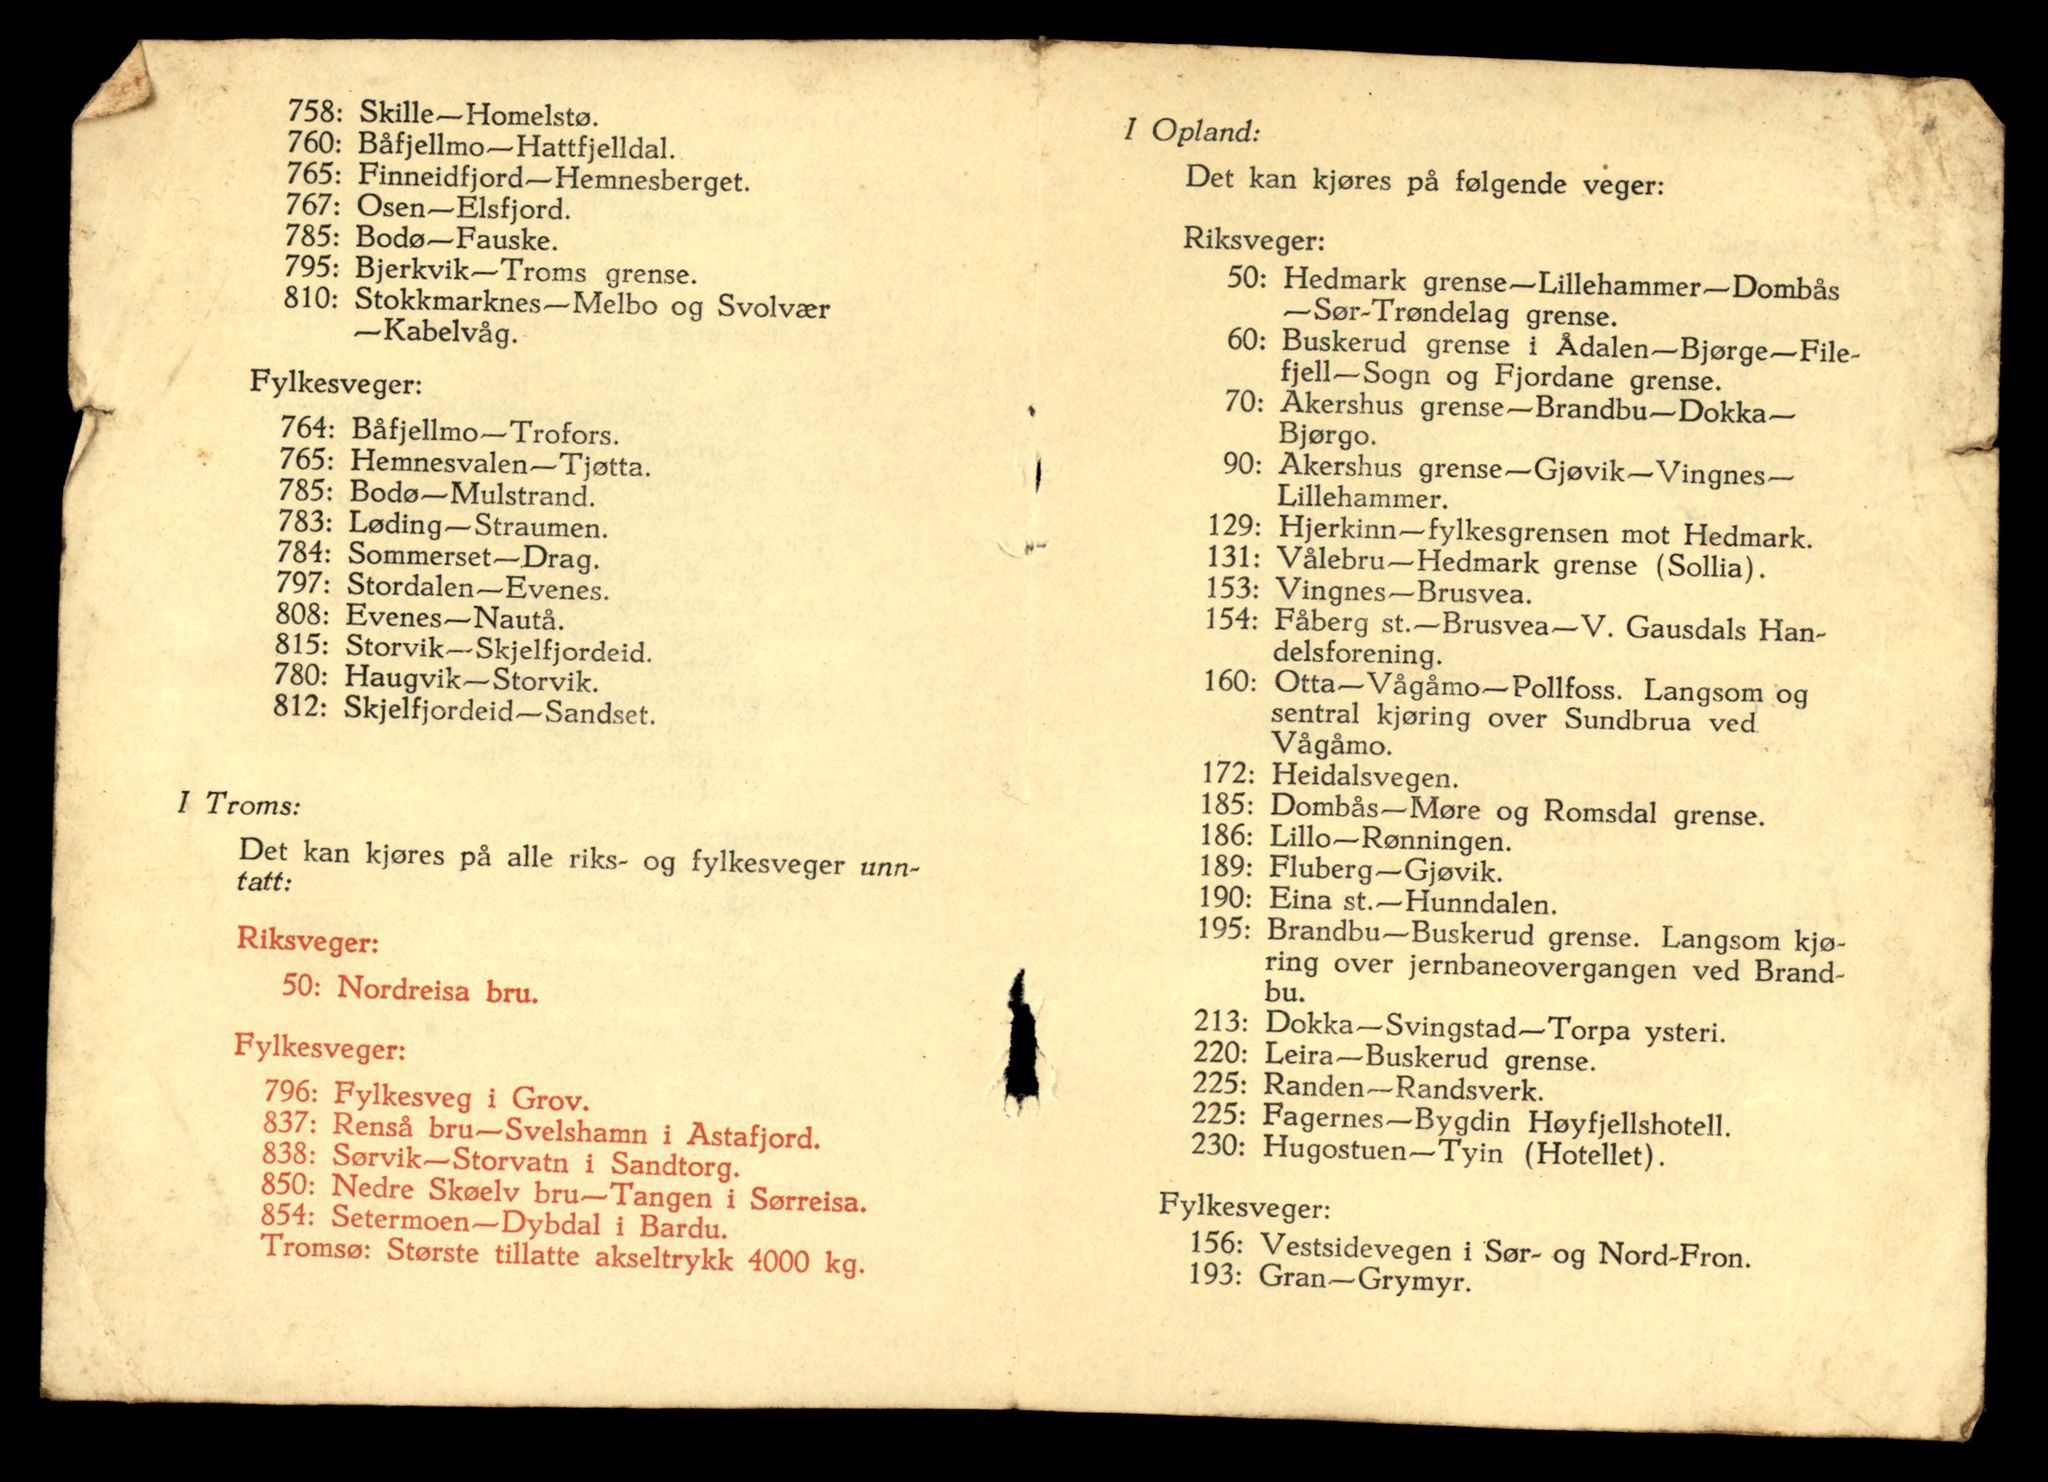 758: Skille—Homelstø.
760: Båfjellmo—Hattfjelldal.
765: Finneidfjord—Hemnesberget.
767: Osen—Elsfjord.
785: Bodø—Fauske.
795: Bjerkvik—Troms grense.
810: Stokkmarknes—Melbo og Svolvær
—Kabelvåg.
Fylkesveger:
764: Båfjellmo—Trofors.
765: Hemnesvalen—Tjøtta.
785: Bodø—Mulstrand.
783: Løding—Straumen.
784: Sommerset—Drag.
797: Stordalen—Evenes.
808: Evenes—Nautå.
815: Storvik—Skjelfjordeid.
780: Haugvik—Storvik.
812: Skjelfjordeid—Sandset.
I Troms:
Det kan kjøres på alle riks- og fylkesveger unn-
tatt:
Riksveger:
50: Nordreisa bru.
Fylkesveger:
796: Fylkesveg i Grov.
837: Renså bru—Svelshamn i Astafjord.
838: Sørvik—Storvatn i Sandtorg.
850: Nedre Skøelv bru—Tangen i Sørreisa.
854: Setermoen—Dybdal i Bardu.
Tromsø: Største tillatte akseltrykk 4000 kg.
I Opland:
Det kan kjøres på følgende veger:
Riksveger:
50: Hedmark grense—Lillehammer—Dombås
—Sør-Trøndelag grense.
60: Buskerud grense i Ådalen—Bjørge—File-
fjell—Sogn og Fjordane grense.
70: Akershus grense—Brandbu—Dokka—
Bjørgo.
90: Akershus grense—Gjøvik—Vingnes—
Lillehammer.
129: Hjerkinn—fylkesgrensen mot Hedmark.
131: Vålebru—Hedmark grense (Sollia).
153: Vingnes—Brusvea.
154: Fåberg st.—Brusvea—V. Gausdals Han-
delsforening.
160: Otta—Vågåmo—Pollfoss. Langsom og
sentral kjøring over Sundbrua ved
Vågåmo.
172: Heidalsvegen.
185: Dombås—Møre og Romsdal grense.
186: Lillo—Rønningen.
189: Fluberg—Gjøvik.
190: Eina st.—Hunndalen.
195: Brandbu—Buskerud grense. Langsom kjø-
ring over jernbaneovergangen ved Brand-
bu.
213: Dokka—Svingstad—Torpa ysteri.
220: Leira—Buskerud grense.
225: Randen—Randsverk.
225: Fagernes—Bygdin Høyfjellshotell.
230: Hugostuen—Tyin (Hotellet).
Fylkesveger:
156: Vestsidevegen i Sør- og Nord-Fron.
193: Gran—Grymyr.